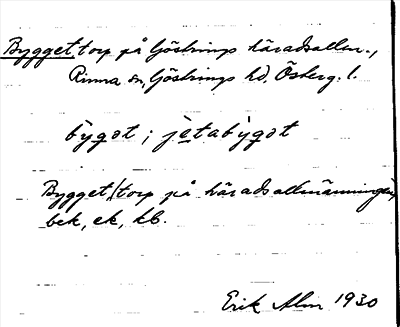 Bygget, torp på Göstrings häradsallm.,
Rinna sn, Göstrings hd, Österg. l.
bỳgət ; jètabỳgət
Bygget, torp på häradsallmänningen,
bek, ek, kb.
Erik Alm 1930